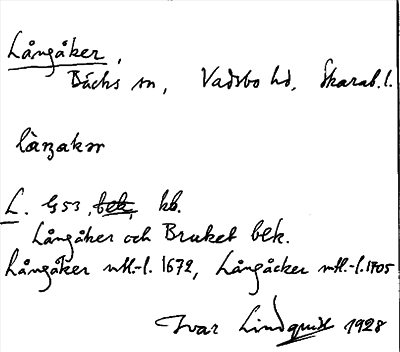 Långåker,
Bäcks sn, Vadsbo hd, Skarab. l.
làŋakər
L. G53, bek, kb.
Långåker och Bruket bek.
Långåker mtl.-l. 1672, Långåcker mtl.-l. 1705
Ivar Lindquist 1928